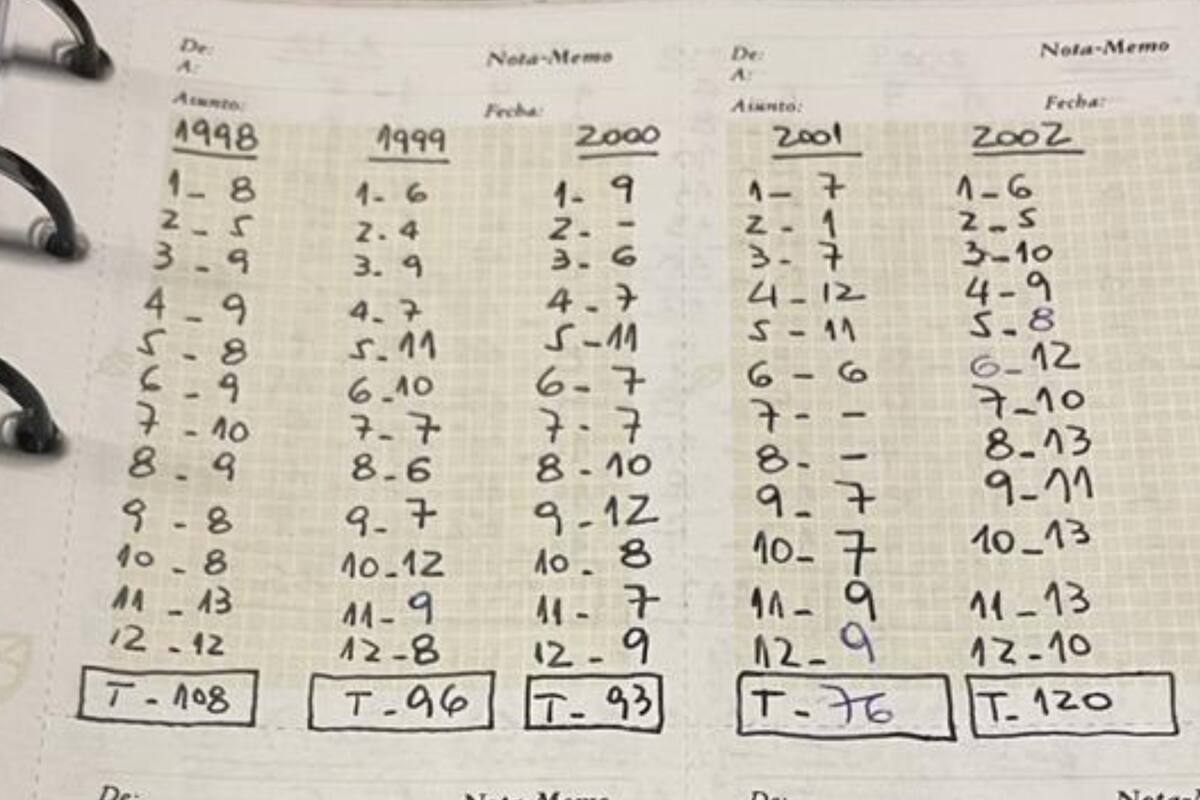 De: Nota-Memo De: Nota-Memo
A: A:
Asunto: Fecha: Asunto: Fecha:
1998 1999 2000 2001 2002
1-8 1-6 1-9 1-7 1-6
2-5 2-4 2-- 2-1 2-5
3-9 3-9 3-6 3-7 3-10
4-9 4-7 4-7 4-12 4-9
5-8 5-11 5-11 5-11 5-8
6-9 6-10 6-7 6-6 6-12
7-10 7-7 7-7 7-- 7-10
8-9 8-6 8-10 8-- 8-13
9-8 9-7 9-12 9-7 9-11
10-8 10-12 10-8 10-7 10-13
11-13 11-9 11-7 11-9 11-13
12-12 12-8 12-9 12-9 12-10
T-108 T-96 T-93 T-76 T-120
De: Nota-Memo De: